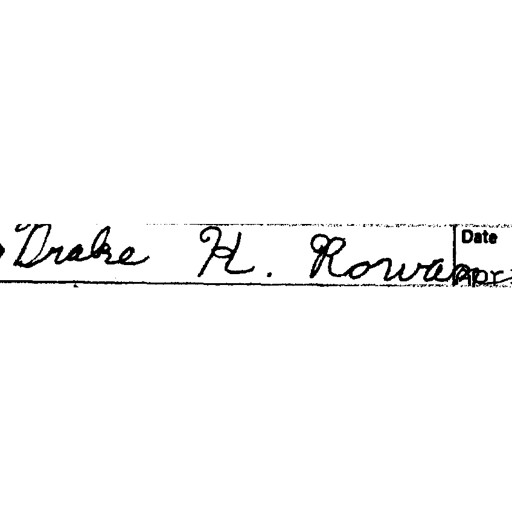 Drake H. Rowan Date
Apr